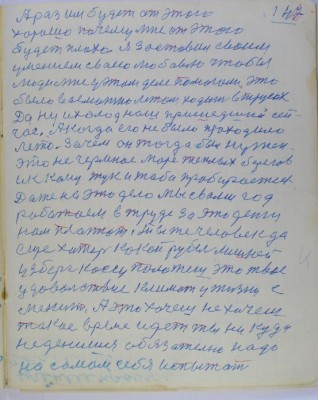 А раз им будет от этого
хорошо почему же от этого
будет плохо. Я заставил своим
умением свою любовью чтобы
люди мне в этом деле помогали. Это
было возможно летом ходить в трусах
До ну и холод нам пришедший сей-
час. А когда его не было проходило
лето. Зачем он тогда был нужен.
Это не Черное море теплых берегов
и к кому тут и та ба пробирается
Даже мы это дело мы свами год
работаем в труде за это деньги
нам платят. Ты же человек да
еще хитер какой рубль лишней
у сберг кассу положим это твое
удовольствие климат у жизни с
менить. А это хочем не хочем
такое время идет ты ни куда
не денешся обязательно надо
на самом себя испытат